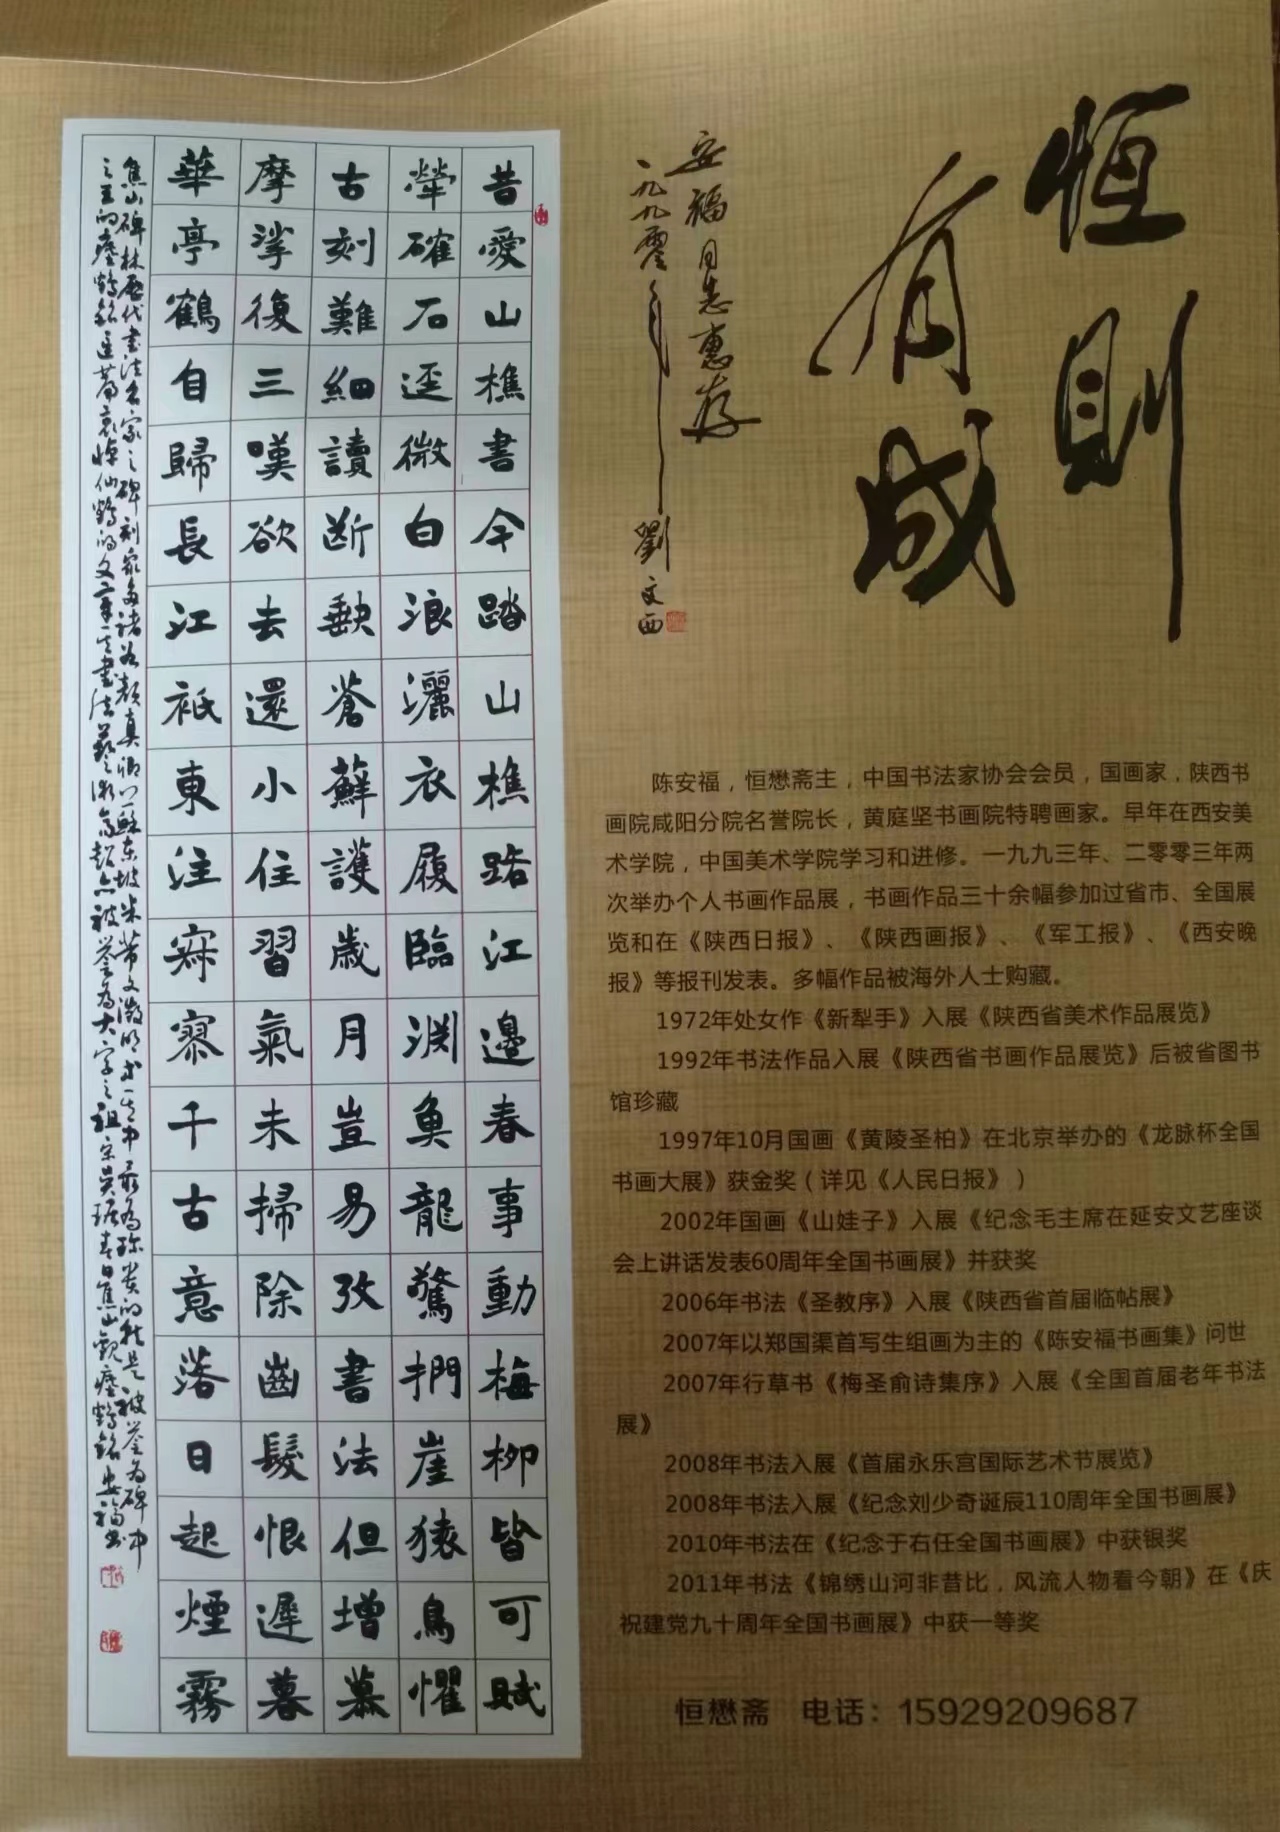 恒則
有成
安福同志惠存
一九九零年 劉文西
陈安福，恒懋斋主，中国书法家协会会员，国画家，陕西书
画院咸阳分院名誉院长，黄庭坚书画院特聘画家。早年在西安美
术学院，中国美术学院学习和进修。一九九三年、二零零三年两
次举办个人书画作品展，书画作品三十余幅参加过省市、全国展
览和在《陕西日报》、《陕西画报》、《军工报》、《西安晚
报》等报刊发表。多幅作品被海外人士购藏。
1972年处女作《新犁手》入展《陕西省美术作品展览》
1992年书法作品入展《陕西省书画作品展览》后被省图书
馆珍藏
1997年10月国画《黄陵圣柏》在北京举办的《龙脉杯全国
书画大展》获金奖（详见《人民日报》）
2002年国画《山娃子》入展《纪念毛主席在延安文艺座谈
会上讲话发表60周年全国书画展》并获奖
2006年书法《圣教序》入展《陕西省首届临帖展》
2007年以郑国渠首写生组画为主的《陈安福书画集》问世
2007年行草书《梅圣俞诗集序》入展《全国首届老年书法
展》
2008年书法入展《首届永乐宫国际艺术节展览》
2008年书法入展《纪念刘少奇诞辰110周年全国书画展》
2010年书法在《纪念于右任全国书画展》中获银奖
2011年书法《锦绣山河非昔比，风流人物看今朝》在《庆
祝建党九十周年全国书画展》中获一等奖
恒懋斋 电话：15929209687
昔愛山樵書今踏山樵路江邊春事動梅柳皆可賦
犖確石逕微白浪灑衣履臨渊魚龍驚捫崖猿鳥懼
古刻難細讀断缺蒼蘚護歲月豈易攷書法但增慕
摩挲復三嘆欲去還小住習氣未掃除齒髮恨遲暮
華亭鶴自歸長江衹東注寂寥千古意落日起煙霧
焦山碑林歷代書法名家之碑刻衆多諸如顏真卿蘇東坡米芾文徵明等其中最為珍貴的就是被譽為碑中
之王的瘞鶴銘這篇哀悼仙鶴的文章其書法藝術高超亦被譽為大字之祖宗吳琚春日焦山觀瘞鶴銘安福書